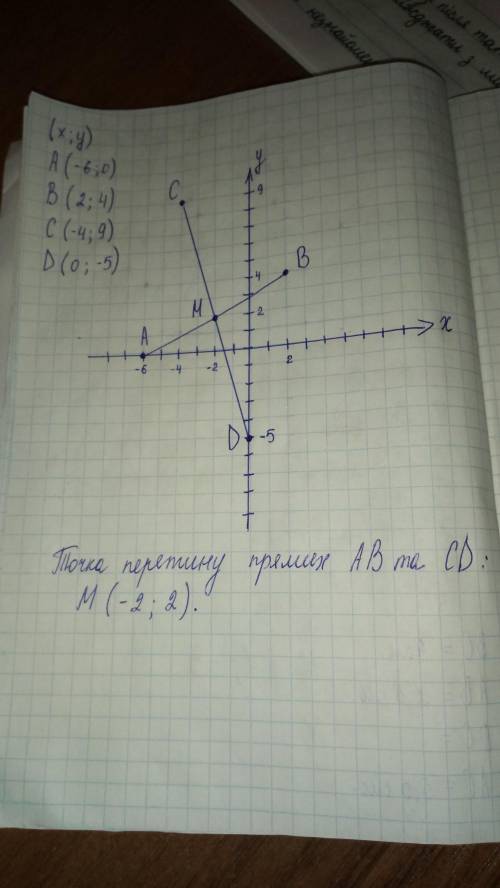 після та
(x; y)
A (-6; 0)
B (2; 4)
C (-4; 9)
D (0; -5)
y
9
C
B
4
M
2
A
x
-6 -4 -2 2
D -5
Точка перетину прямих AB та CD:
M (-2; 2).